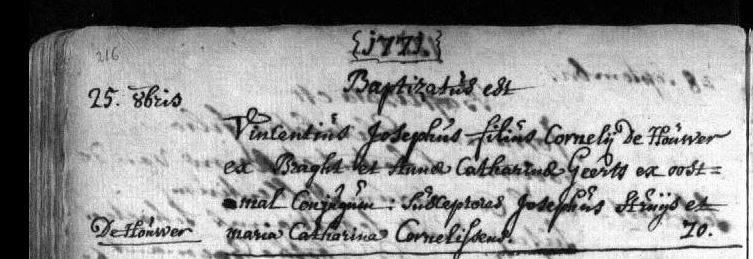 216
{1771.}
Baptizatus est
25. 8bris
Vincentius Josephus filius Cornelij De Houwer
ex Braght et Annae Catharinae Geerts ex oost=
=mal Conjugum: Susceptores Josephus Struijs et
De Houwer
maria Catharina Cornelissens. 70.